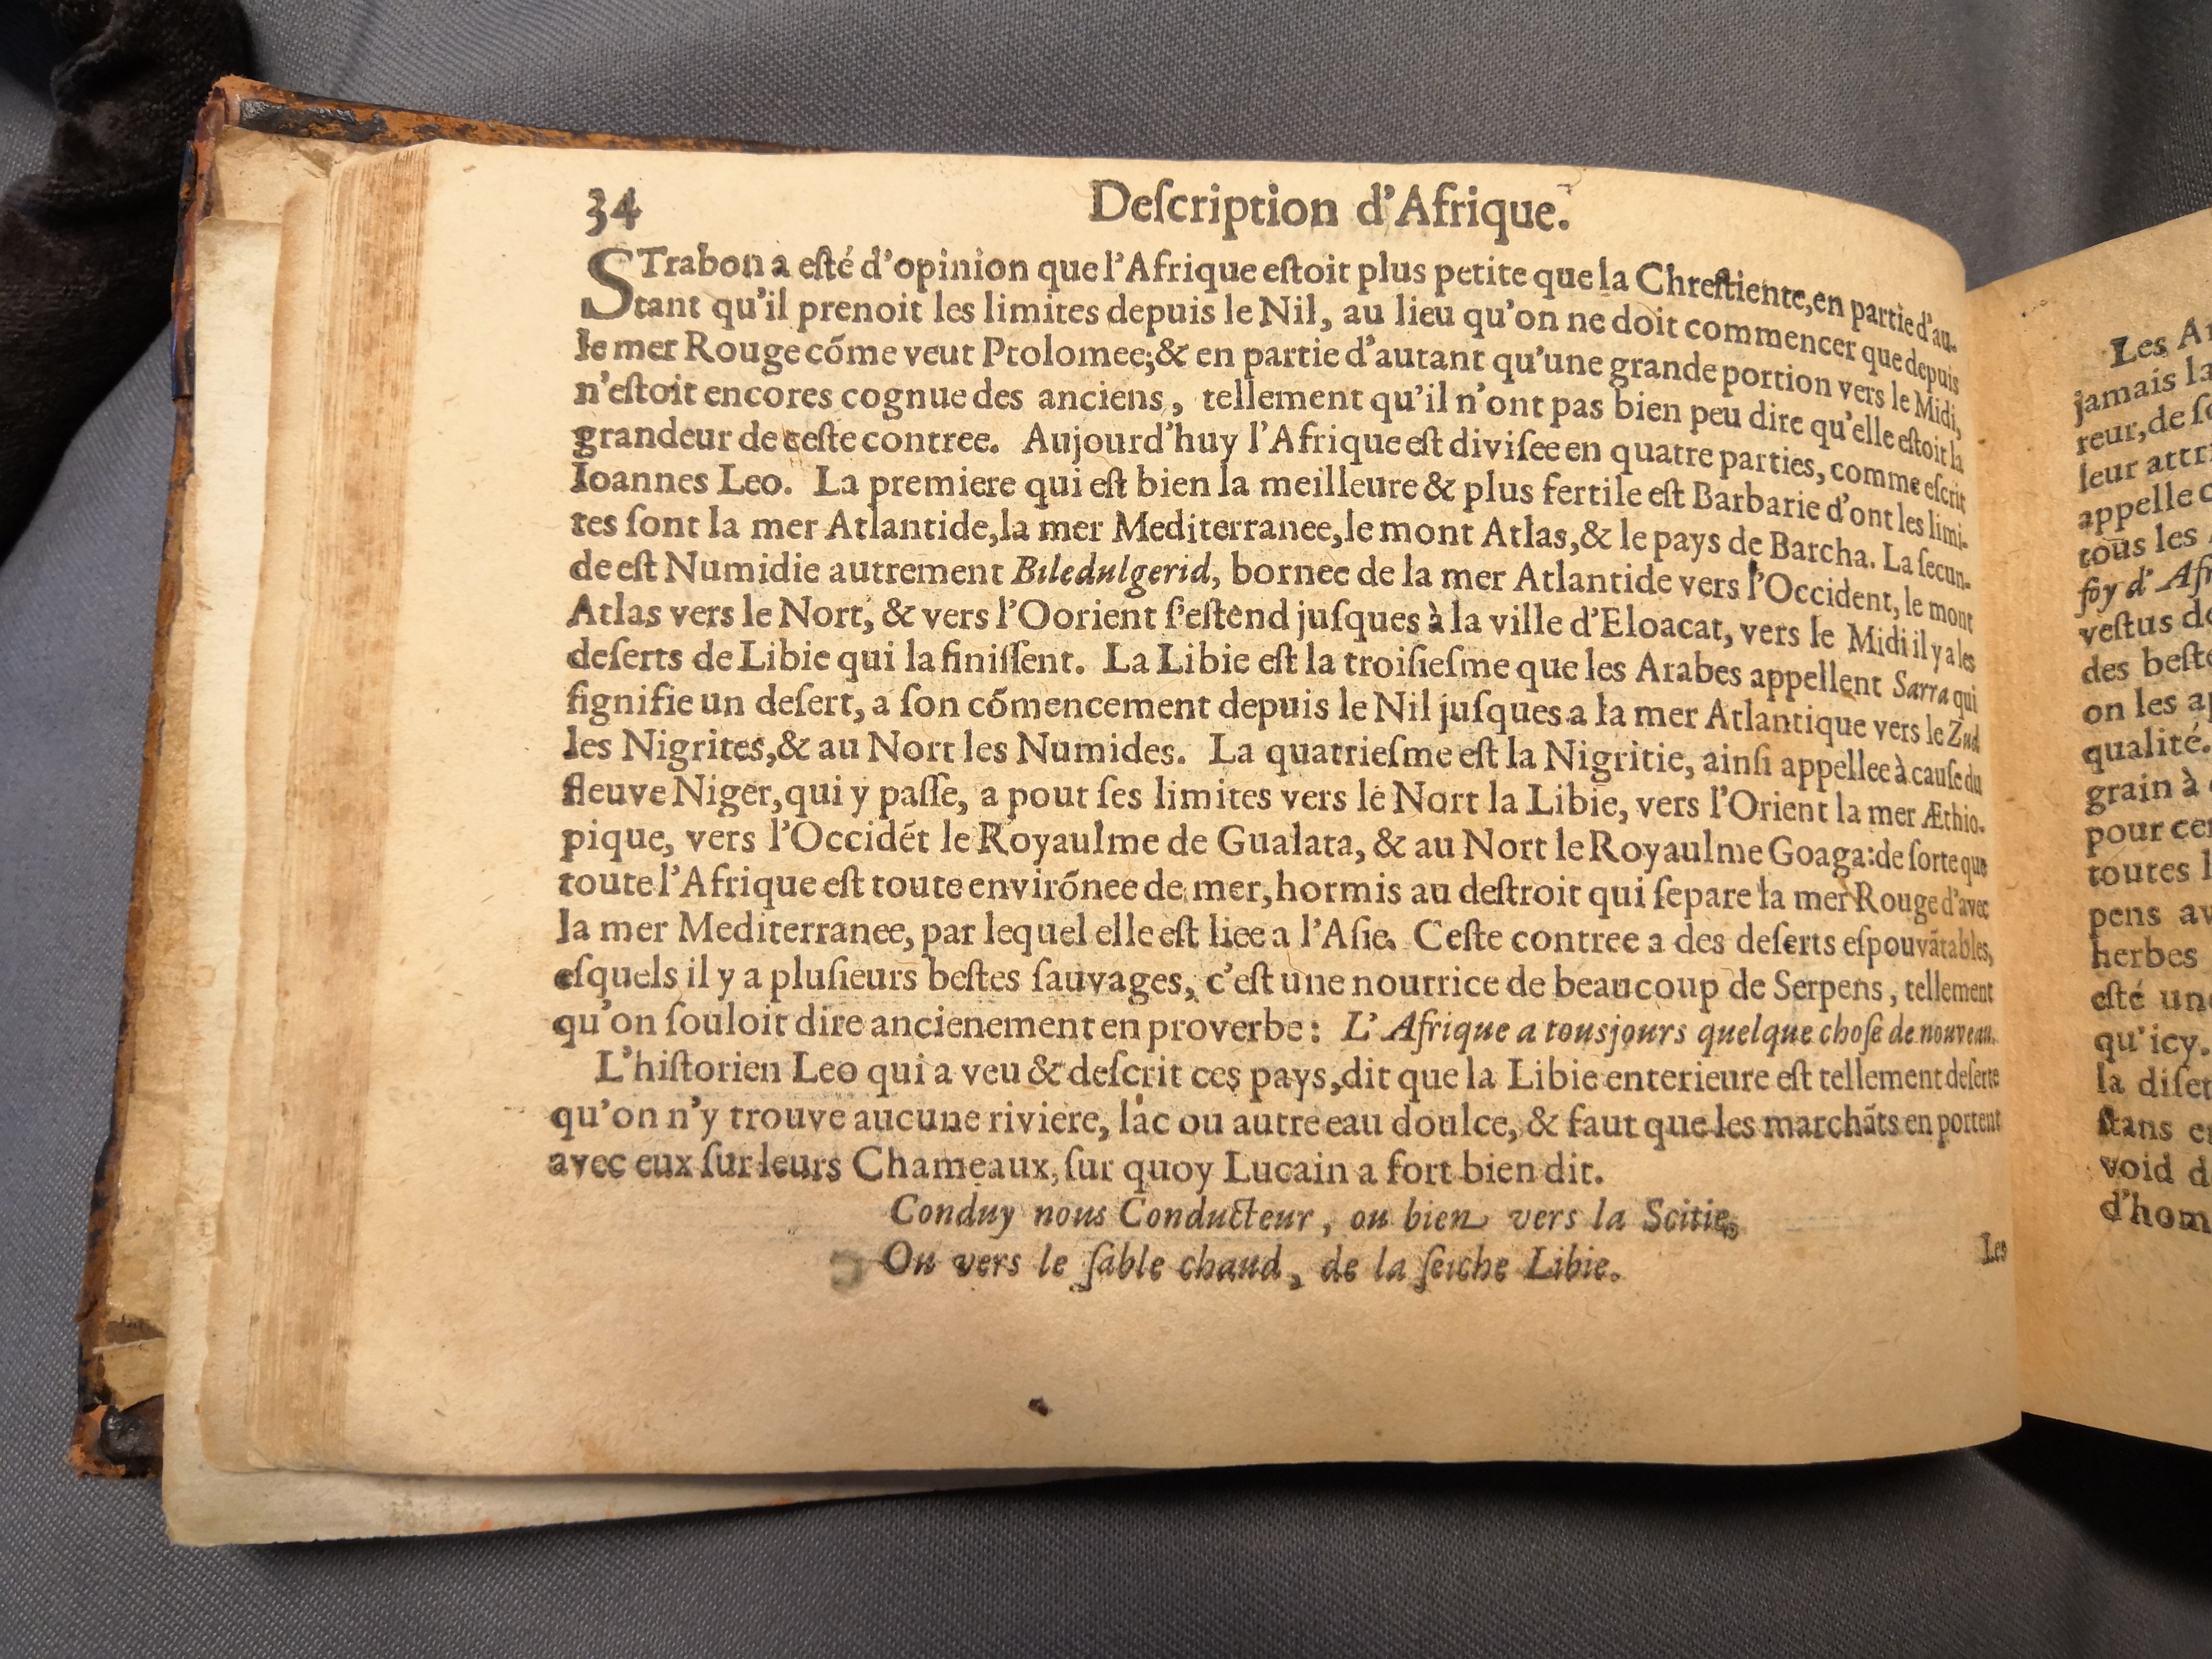 34 Deſcription d'Afrique.
STrabon a eſté d'opinion que l'Afrique eſtoit plus petite que la Chreſtiente, en partie d'au-
tant qu'il prenoit les limites depuis le Nil, au lieu qu'on ne doit commencer que depuis
le mer Rouge cõme veut Ptolomee; & en partie d'autant qu'une grande portion vers le Midi,
n'eſtoit encores cognue des anciens, tellement qu'il n'ont pas bien peu dire qu'elle eſtoit la
grandeur de ceſte contree. Aujourd'huy l'Afrique eſt diviſee en quatre parties, comme eſcrit
Ioannes Leo. La premiere qui eſt bien la meilleure & plus fertile eſt Barbarie d'ont les limi-
tes ſont la mer Atlantide, la mer Mediterranee, le mont Atlas, & le pays de Barcha. La ſecun-
de eſt Numidie autrement Biledulgerid, bornee de la mer Atlantide vers l'Occident, le mont
Atlas vers le Nort, & vers l'Oorient ſ'eſtend juſques à la ville d'Eloacat, vers le Midi il y a les
deſerts de Libie qui la finiſſent. La Libie eſt la troiſieſme que les Arabes appellent Sarra qui
ſignifie un deſert, a ſon cõmencement depuis le Nil juſques a la mer Atlantique vers le Zud
les Nigrites, & au Nort les Numides. La quatrieſme eſt la Nigritie, ainſi appellee à cauſe du
fleuve Niger, qui y paſſe, a pour ſes limites vers le Nort la Libie, vers l'Orient la mer Æthio-
pique, vers l'Occidẽt le Royaulme de Gualata, & au Nort le Royaulme Goaga: de ſorte que
toute l'Afrique eſt toute envirõnee de mer, hormis au deſtroit qui ſepare la mer Rouge d'avec
la mer Mediterranee, par lequel elle eſt liee a l'Aſie. Ceſte contree a des deſerts eſpouvãtables,
eſquels il y a pluſieurs beſtes ſauvages, c'eſt une nourrice de beaucoup de Serpens, tellement
qu'on ſouloit dire ancienement en proverbe: L'Afrique a tousjours quelque choſe de nouveau.
L'hiſtorien Leo qui a veu & deſcrit ces pays, dit que la Libie enterieure eſt tellement deſerte
qu'on n'y trouve aucune riviere, lac ou autre eau doulce, & faut que les marchãts en portent
avec eux ſur leurs Chameaux, ſur quoy Lucain a fort bien dit.
Conduy nous Conducteur, ou bien vers la Scitie,
Ou vers le ſable chaud, de la ſeiche Libie.
Les
Les
jamais la
reur, de
leur
appelle
tous les
foy d'
veſtus
des
on les
qualité.
grain à
pour
toutes
pens
herbes
eſté
qu'icy.
la
ſtans
void